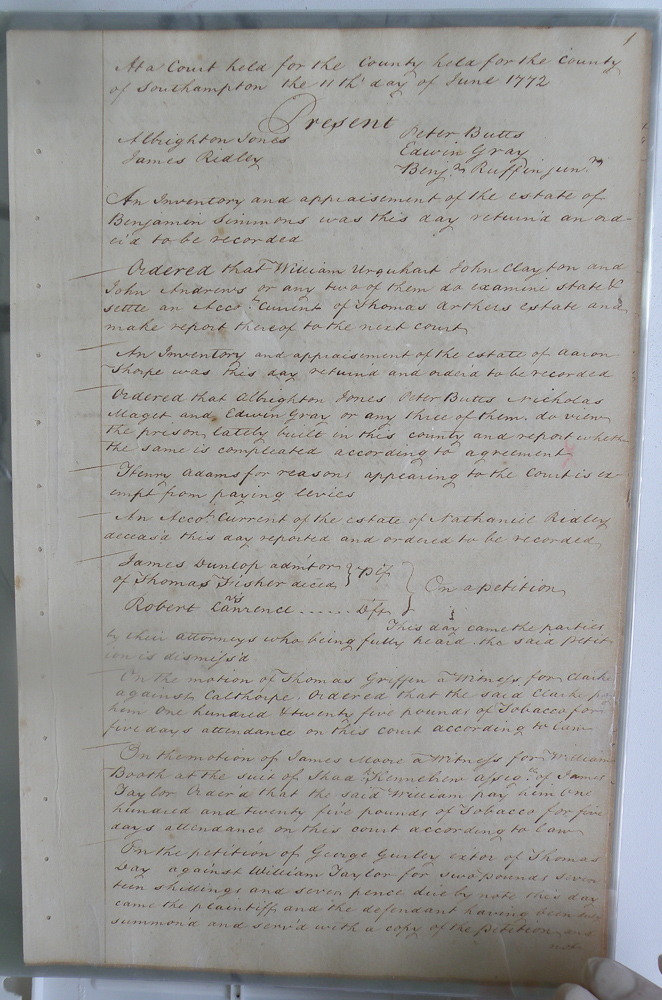 1
At a Court held for the County held for the County
of Southampton the 11th day of June 1772
Present
Albrighton Jones
James Ridley
Peter Butts
Edwin Gray
Benjn Ruffin junr
An Inventory and appraisement of the estate of
Benjamin Simmons was this day return'd an ord-
er'd to be recorded
Ordered that William Urquhart John Clayton and
John Andrews or any two of them do examine state &
settle an Acct Current of Thomas Arthers estate and
make report thereof to the next court
An Inventory and appraisement of the estate of Aaron
Thorpe was this day return'd and order'd to be recorded
Ordered that Albrighton Jones Peter Butts Nicholas
Maget and Edwin Gray or any three of them do view
the prison lately built in this county and report whether
the same is compleated according to agreement
Henry Adams for reasons appearing to the Court is ex
empt from paying levies
An Acct Current of the estate of Nathaniel Ridley
deceas'd this day reported and ordered to be recorded
James Dunlop admtor
of Thomas Fisher deced } Plf
vs
Robert Lawrence ...... Dft
} On a petition
This day came the parties
by their attorneys who being fully heard the said Petit-
ion is dismiss'd
On the motion of Thomas Griffin a Witness for Clark
against Calthorpe Ordered that the said Clark pay
him One hundred & twenty five pounds of Tobacco for
five days attendance on this court according to law
On the motion of James Moore a Witness for William
Booth at the suit of Shad Kennebrew assee of James
Taylor Order'd that the said William pay him One
hundred and twenty five pounds of Tobacco for five
days attendance on this court according to law
On the petition of George Gurley extor of Thomas
Day against William Taylor for two pounds seven
teen shillings and seven pence due by note this day
came the plaintiff and the defendant having been
summon'd and serv'd with a copy of the petition and
not